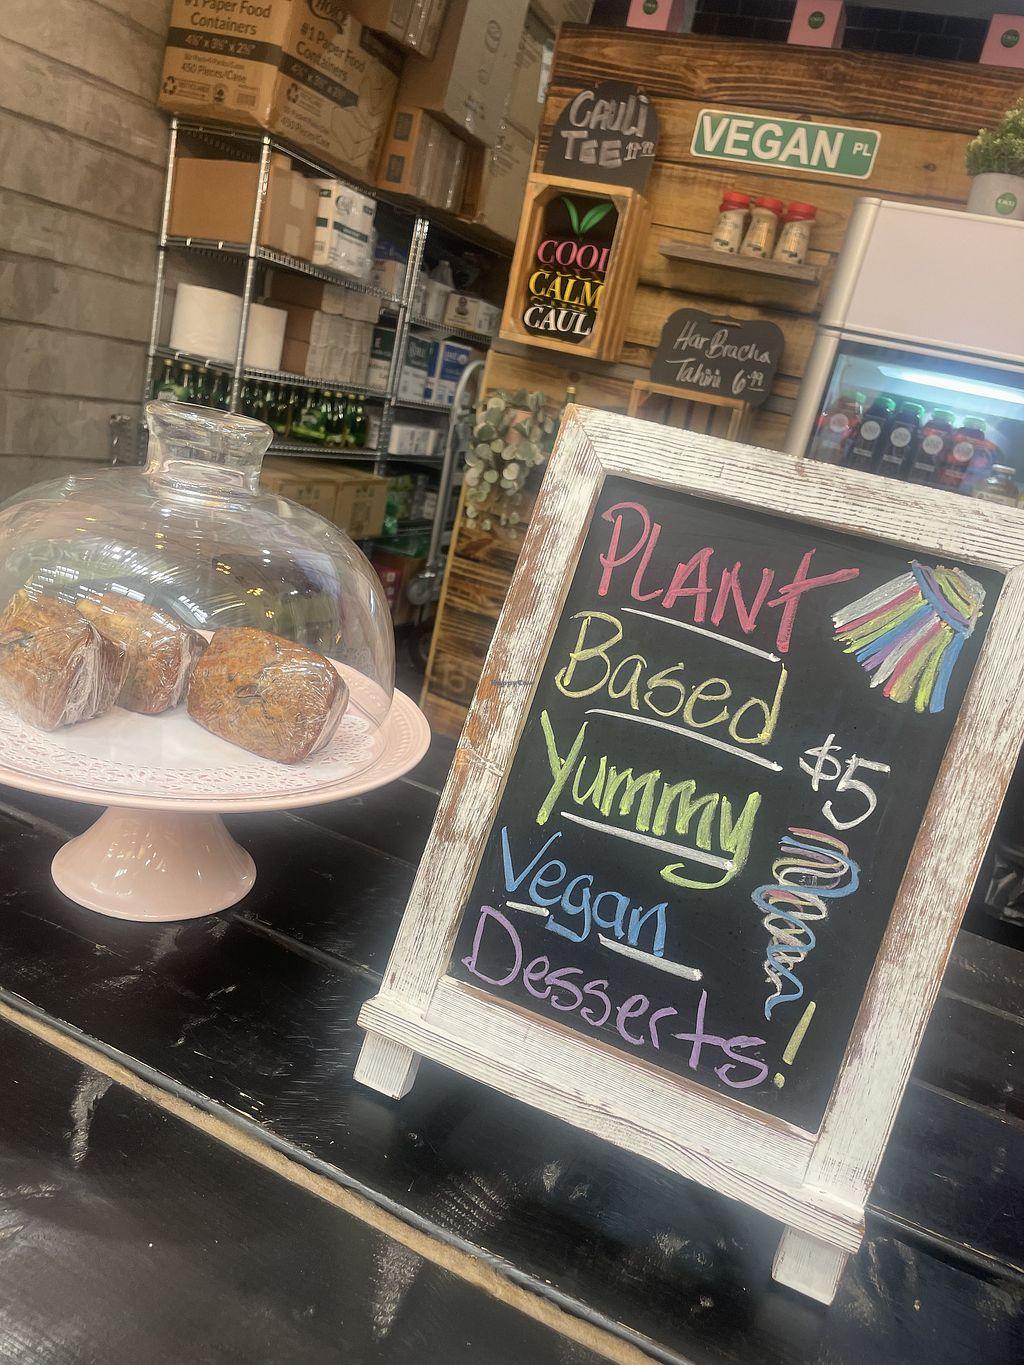 #1 Paper Food
Containers
4⅜" x 3½" x 2½"
450 Pieces/Case
#1 Paper Food
Containers
450 Pieces/Case
CAULI
TEE
VEGAN PL
COOL
CALM
CAUL
Har Bracha
Tahini 6.99
PLANT
Based
Yummy
$5
Vegan
Desserts!